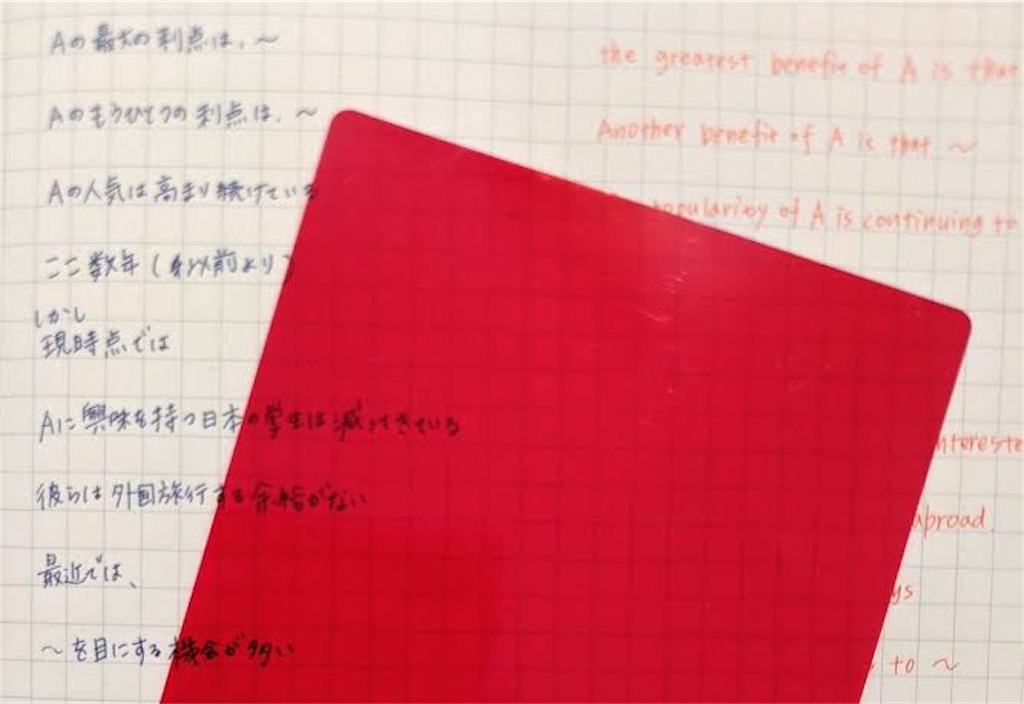 Aの最大の利点は、～
the greatest benefit of A is that
Aのもうひとつの利点は、～
Another benefit of A is that ～
Aの人気は高まり続けている
popularity of A is continuing to
ここ数年(以前より)
しかし
現時点では
Aに興味を持つ日本の学生は減ってきている
intereste
彼らは外国旅行する余裕がない
abroad.
最近では、
ys
～を目にする機会が多い
to ～